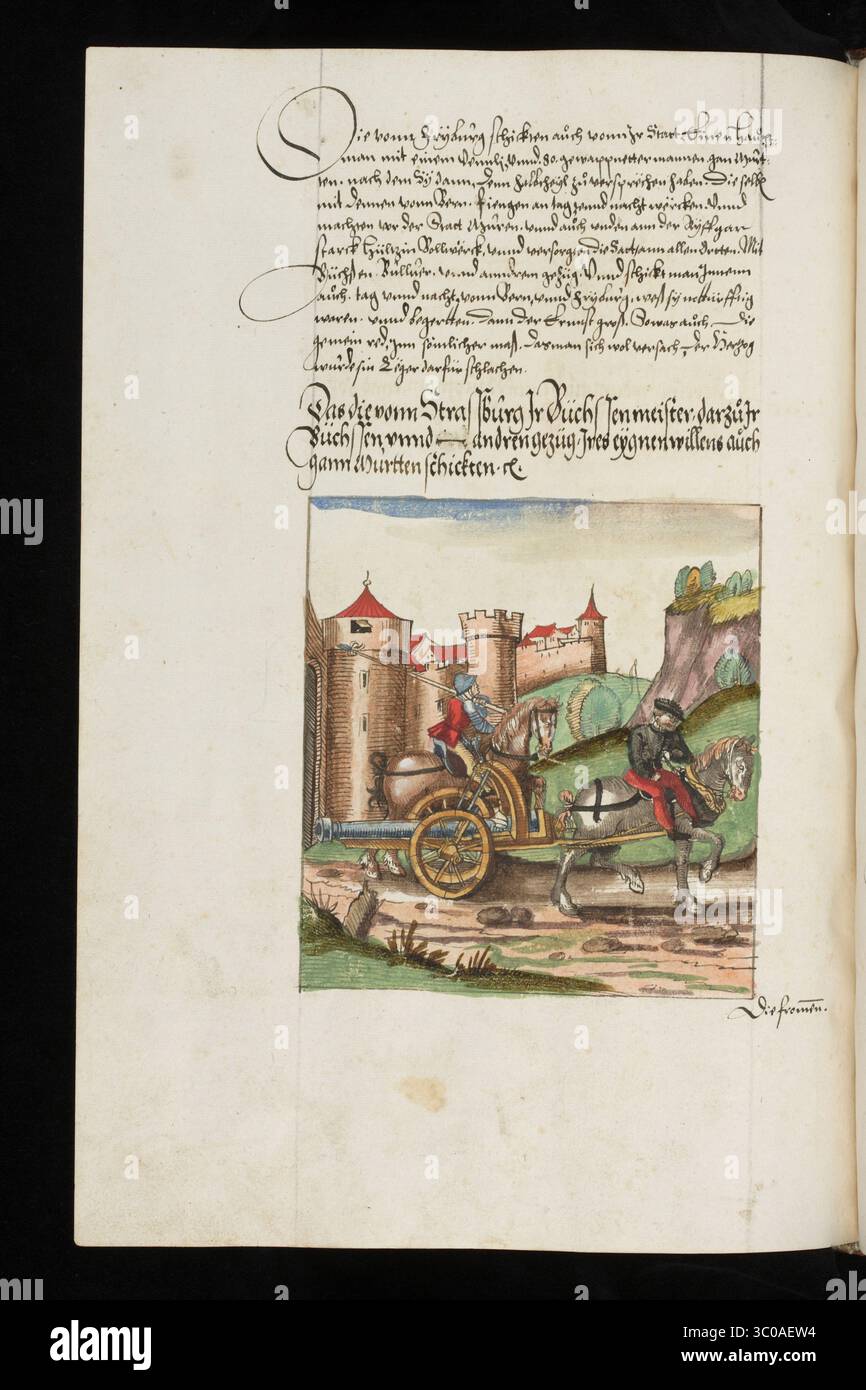 Die vonn Fryburg schickten auch vonn Ir Statt Einen haupt=
man mit einem Vennli, Unnd .80. gewappnetter mannen gan Murt=
ten. nach dem Sy dann, Denn halbtheyl zu versprechen haben. Die selben
mit dennen vonn Bern. fiengen an tag unnd nacht wercken. Unnd
machten vor der Statt Muren. unnd auch unden ann der
starck hültzin Bollwerck, unnd versorgten die Statt ann allen Orten. Mit
Büchssen. Bullver. unnd anndrem gezüg. Unnd schickt man Innenn
auch. tag unnd nacht, vonn Bern, unnd Fryburg, weß sy notturfftig
waren. unnd begertten. dann der Ernnst groß. So was auch die
gemein red, Inn sömlicher maß. das man sich wol versach der Hertzog
wurde sin Leger darfür schlachen.
Das die vonn Strassburg Ir Büchssenmeister. darzu Ir
Büchssen, unnd andren gezüg. Ires eygnen willens auch
gann Murtten schickten. rc.
Die frommen.
alamy
alamy
Image ID: 3C0AEW4
www.alamy.com